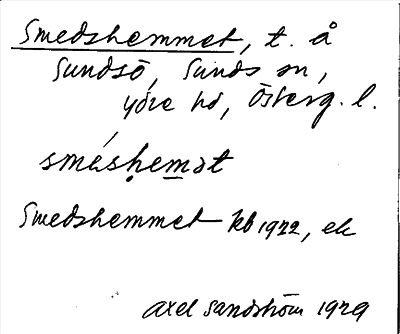 Smedshemmet, t. å
Sundsö, Sunds sn,
ydre hd, Österg. l.
sméshemat
Smedshemmet kb 1922, ek
Axel Sandström 1929